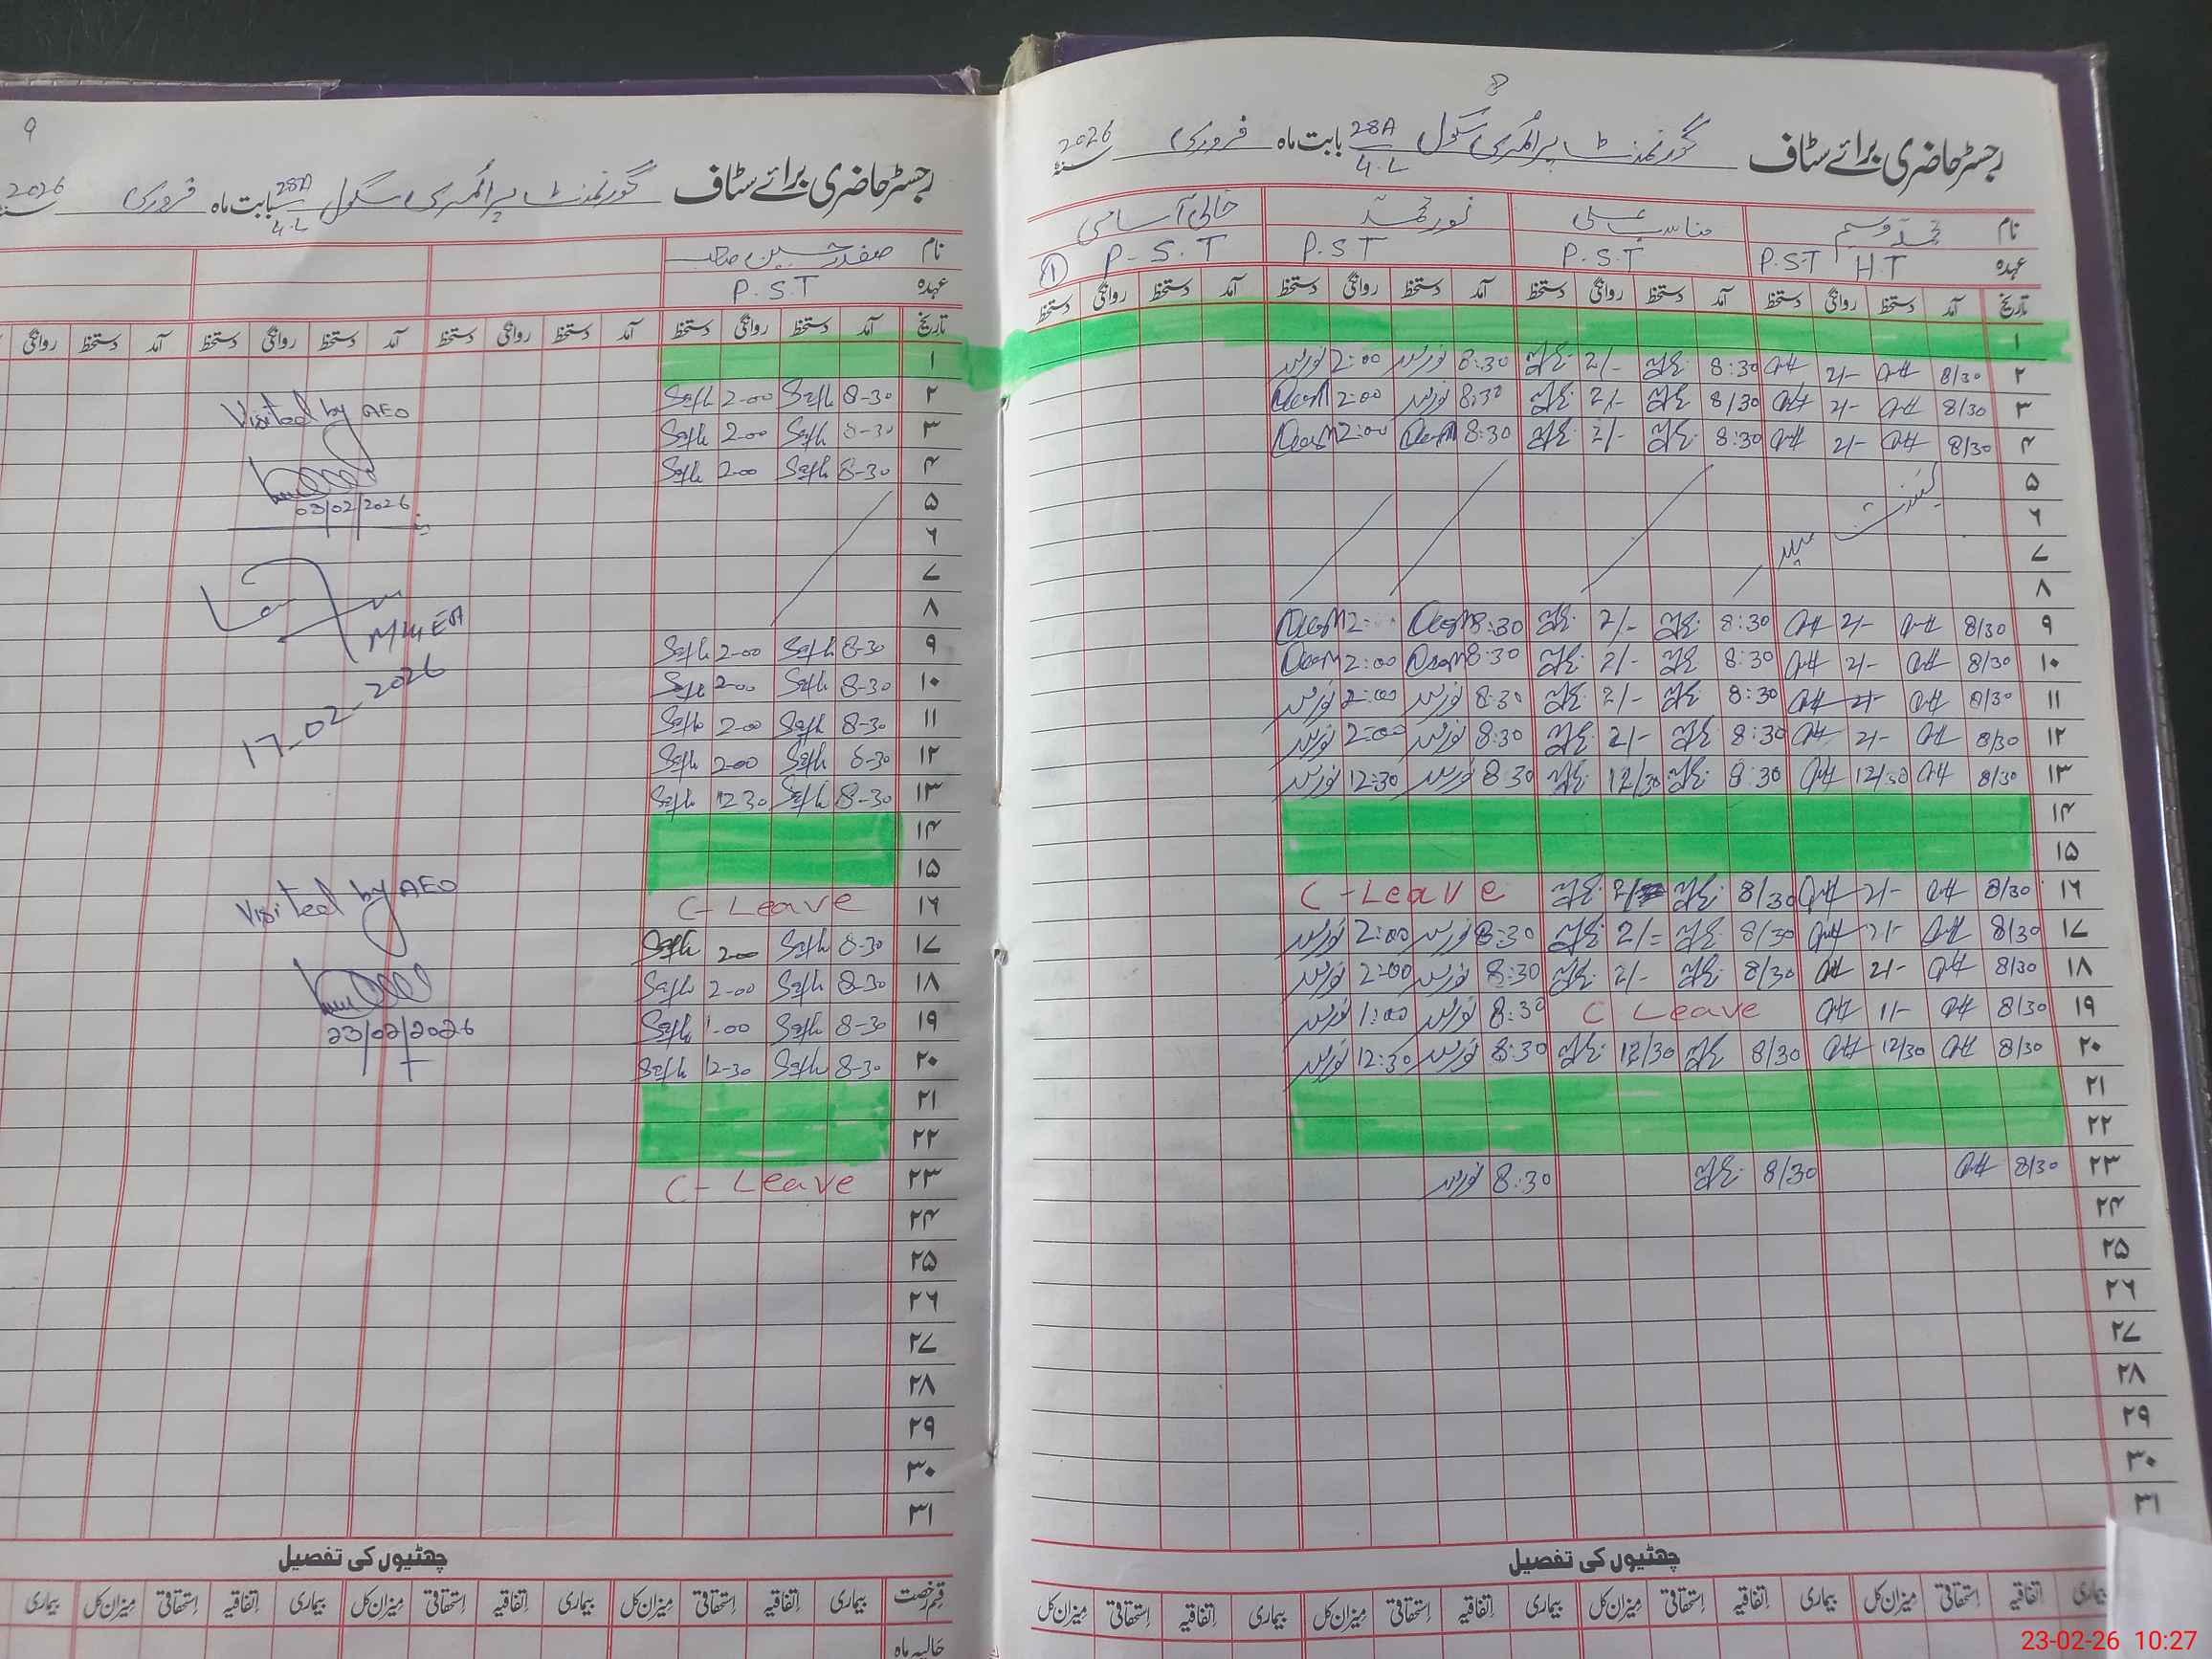 8
رجسٹر حاضری برائے سٹاف گورنمنٹ پرائمری سکول 28A/4.L بابت ماہ فروری سنہ 2026
نام محمد وسیم مناسب علی نور محمد خالی آسامی
عہدہ P.ST H.T P.S.T P.S.T P-S.T ①
تاریخ آمد دستخط روانگی دستخط آمد دستخط روانگی دستخط آمد دستخط روانگی دستخط آمد دستخط روانگی دستخط
۱
۲ 8/30 2/- 8:30 2/- 8:30 نورمحمد 2:00 نورمحمد
۳ 8/30 2/- 8/30 2/- 8:30 نورمحمد 2:00
۴ 8/30 2/- 8:30 2/- 8:30 2:00
۵
۶
۷
۸
۹ 8/30 2/- 8:30 2/- 8:30 2:
۱۰ 8/30 2/- 8:30 2/- 8:30 2:00
۱۱ 8/30 2/- 8:30 2/- 8:30 نورمحمد 2:00 نورمحمد
۱۲ 8/30 2/- 8:30 2/- 8:30 نورمحمد 2:00 نورمحمد
۱۳ 8/30 12/30 8:30 12/30 8:30 نورمحمد 12:30 نورمحمد
۱۴
۱۵
۱۶ 8/30 2/- 8/30 2/ C-Leave
۱۷ 8/30 2/- 8/30 2/= 8:30 نورمحمد 2:00 نورمحمد
۱۸ 8/30 2/- 8/30 2/- 8:30 نورمحمد 2:00 نورمحمد
۱۹ 8/30 1/- C Leave 8:30 نورمحمد 1:00 نورمحمد
۲۰ 8/30 12/30 8/30 12/30 8:30 نورمحمد 12:30 نورمحمد
۲۱
۲۲
۲۳ 8/30 8/30 8:30 نورمحمد
۲۴
۲۵
۲۶
۲۷
۲۸
۲۹
۳۰
۳۱
چھٹیوں کی تفصیل
بیماری اتفاقیہ استحقاقی میزان کل بیماری اتفاقیہ استحقاقی میزان کل بیماری اتفاقیہ استحقاقی میزان کل بیماری اتفاقیہ استحقاقی میزان کل
9
رجسٹر حاضری برائے سٹاف گورنمنٹ پرائمری سکول 28A/4.L بابت ماہ فروری سنہ 2026
نام صفدر حسین
عہدہ P.S.T
تاریخ آمد دستخط روانگی دستخط آمد دستخط روانگی دستخط آمد دستخط روانگی دستخط آمد دستخط روانگی
۱
۲ 8-30 2-00
۳ 8-30 2-00
۴ 8-30 2-00
۵
۶
۷
۸
۹ 8-30 2-00
۱۰ 8-30 2-00
۱۱ 8-30 2-00
۱۲ 8-30 2-00
۱۳ 8-30 12 30
۱۴
۱۵
۱۶ C-Leave
۱۷ 8-30 2-00
۱۸ 8-30 2-00
۱۹ 8-30 1-00
۲۰ 8-30 12-30
۲۱
۲۲
۲۳ C-Leave
۲۴
۲۵
۲۶
۲۷
۲۸
۲۹
۳۰
۳۱
Visited by AEO
03/02/2026
MEA
17-02-2026
Visited by AEO
23/02/2026
چھٹیوں کی تفصیل
قسم رخصت بیماری اتفاقیہ استحقاقی میزان کل بیماری اتفاقیہ استحقاقی میزان کل بیماری اتفاقیہ استحقاقی میزان کل بیماری
حالیہ ماہ
23-02-26 10:27